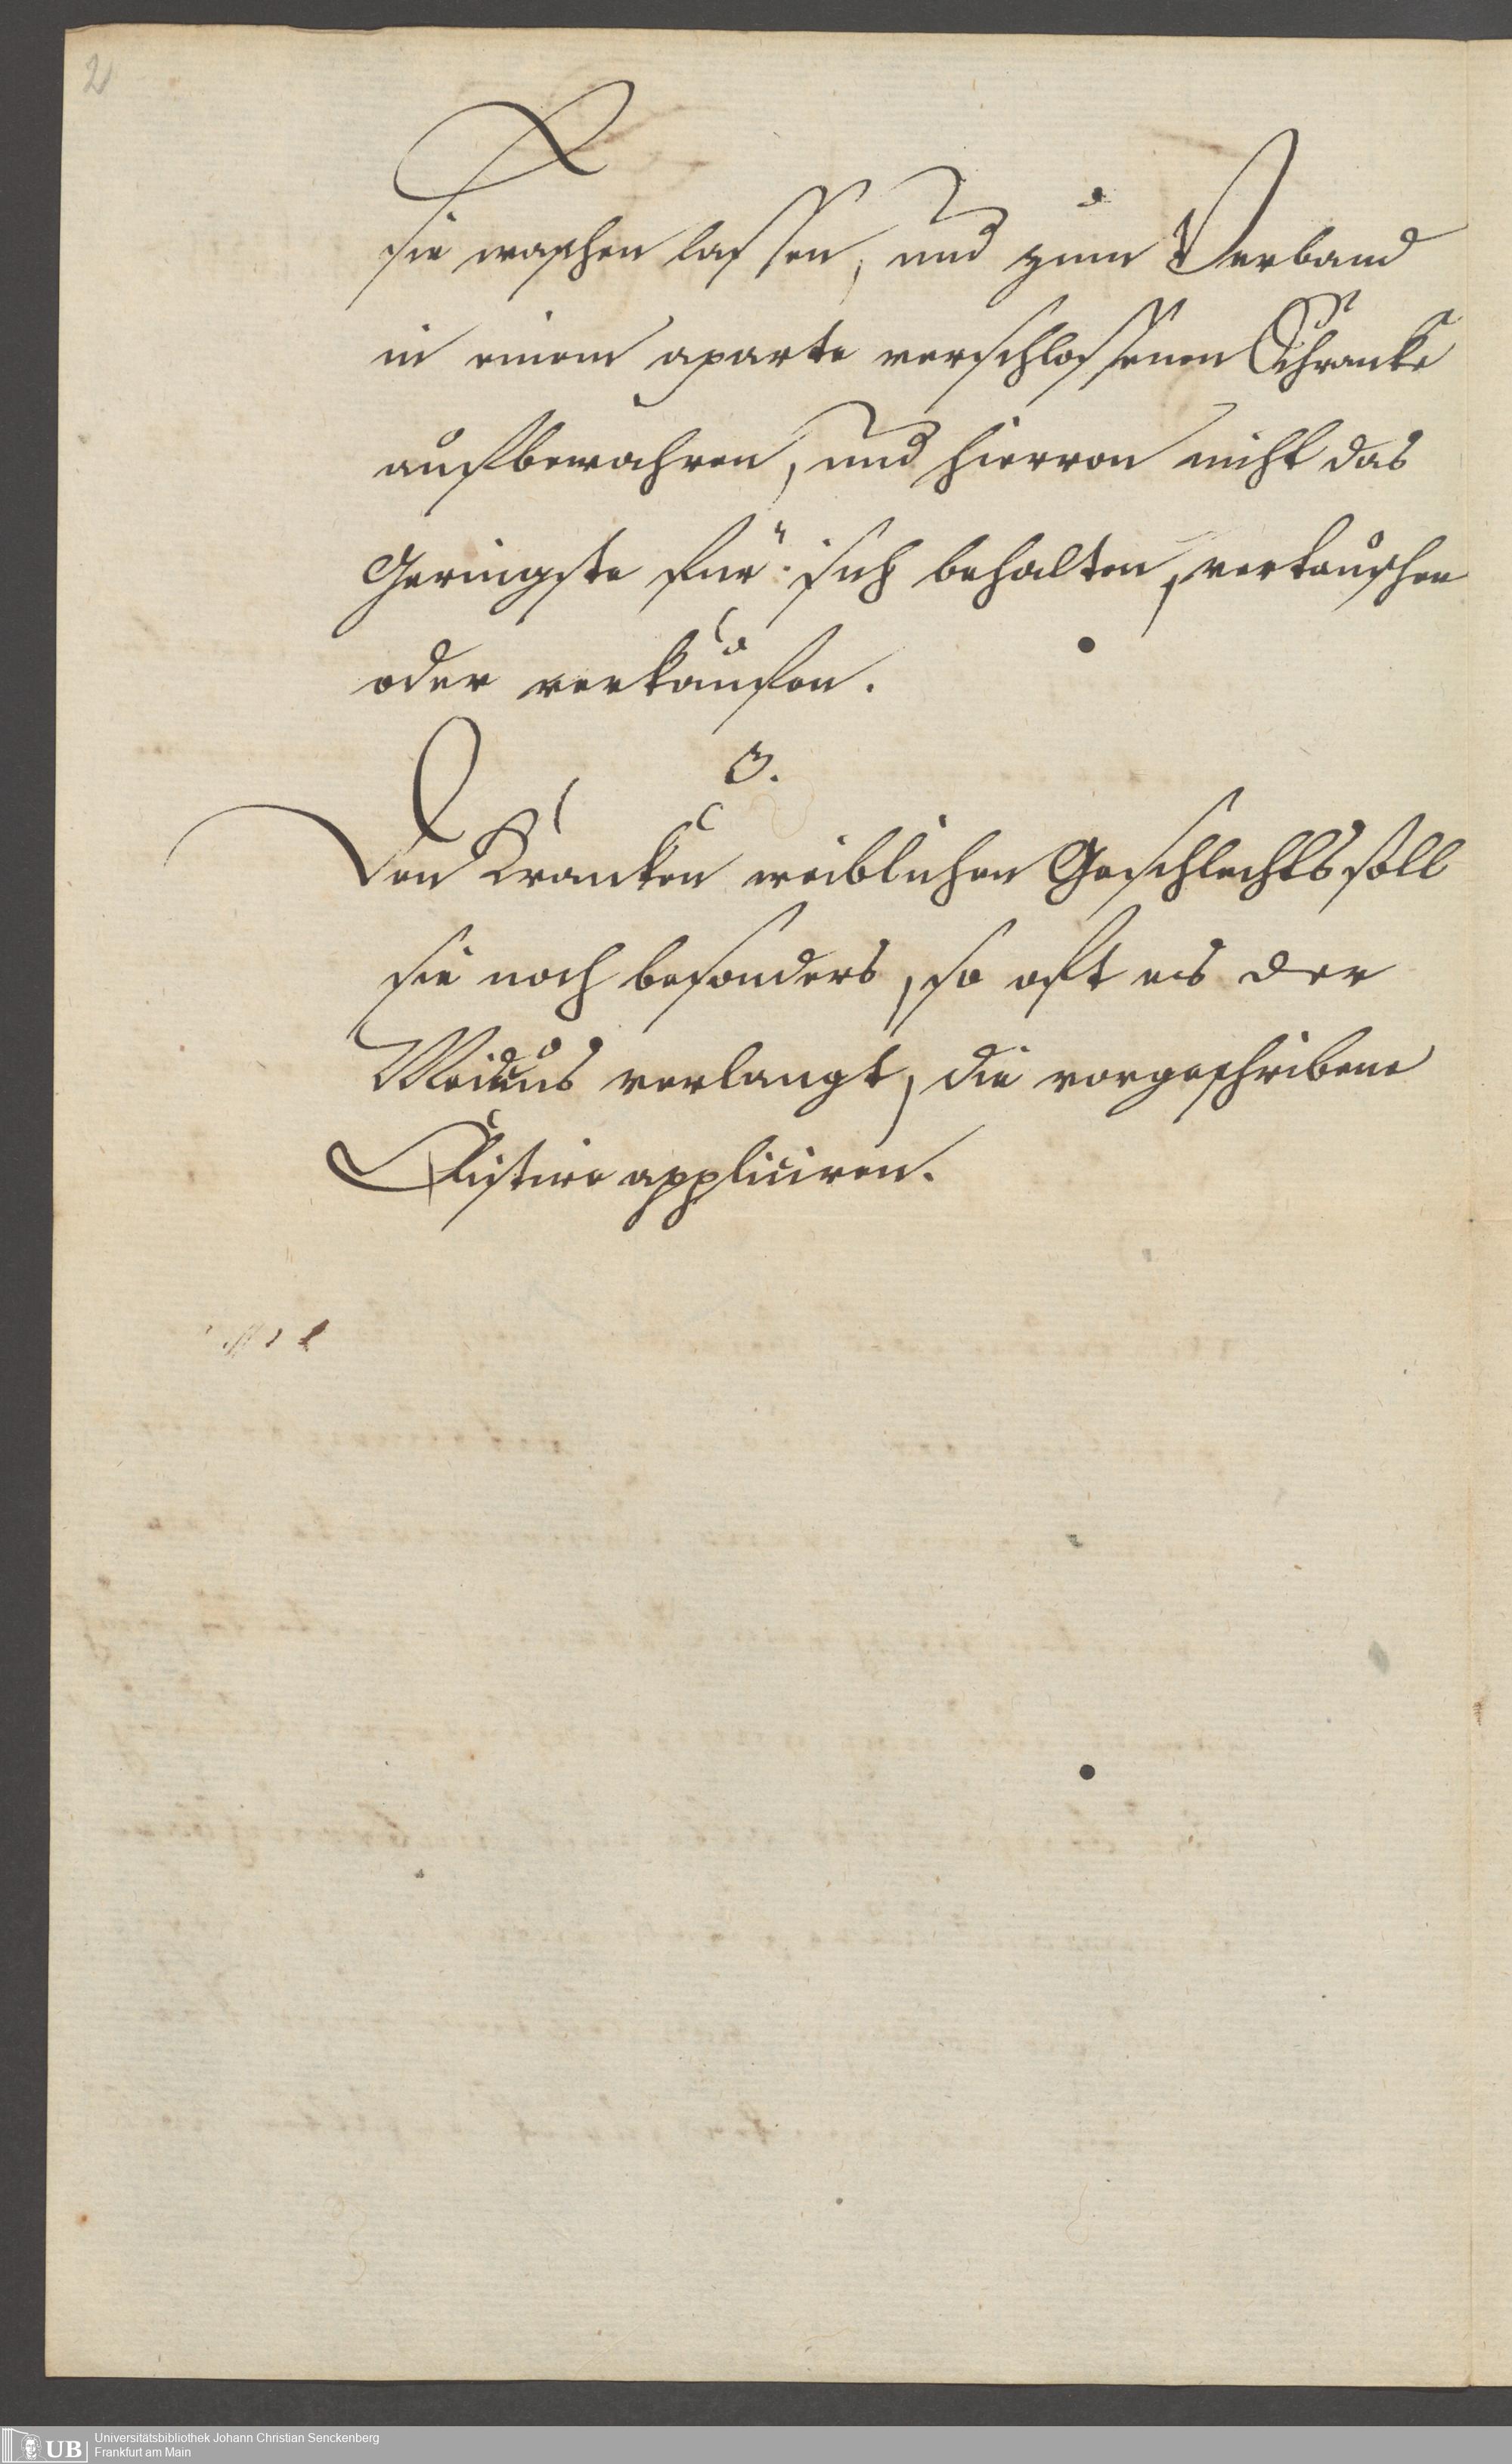 2
sie waschen lassen, und zum Verband
in einem aparte verschlossenen Schrancke
aufbewahren, und hiervon nicht das
Geringste für sich behalten, vertauschen
oder verkaufen.
3.
Den Krancken weiblichen Geschlechts soll
sie noch besonders, so oft es der
Medicus verlangt, die vorgeschribene
Clistire appliciren.
UB
Universitätsbibliothek Johann Christian Senckenberg
Frankfurt am Main